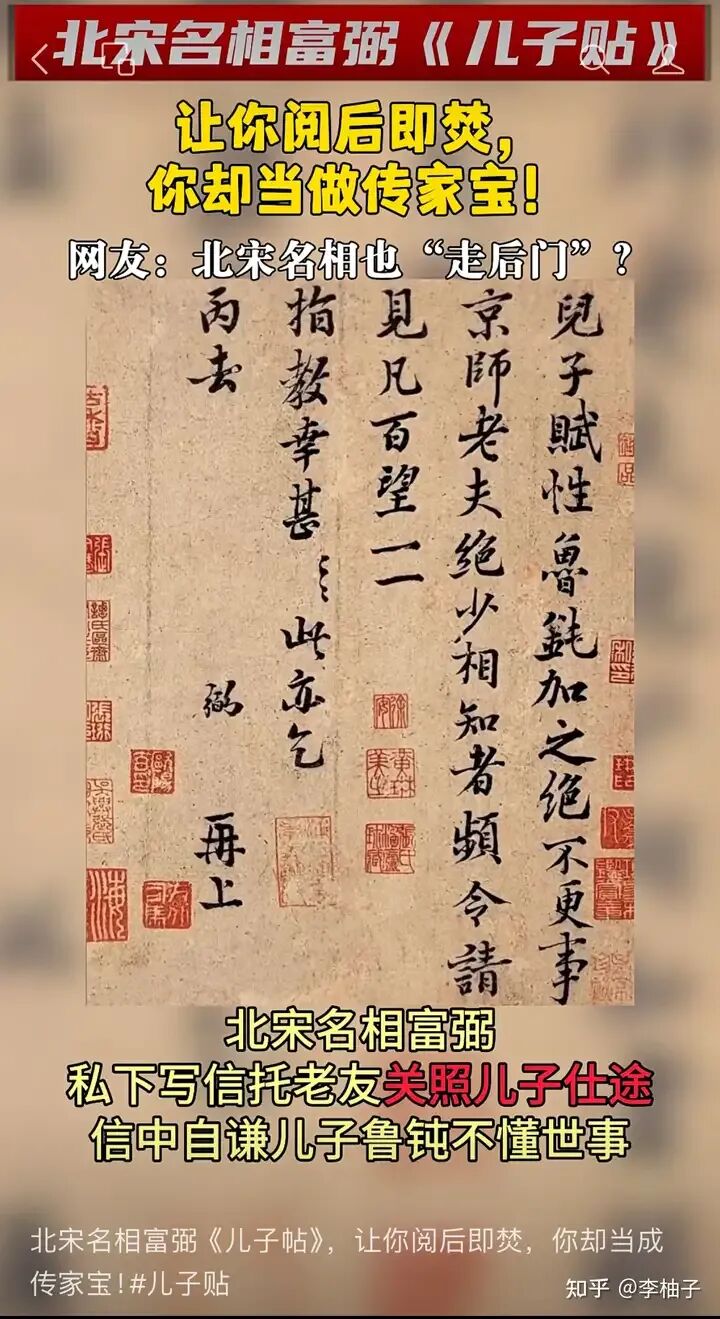 北宋名相富弼《儿子贴》
让你阅后即焚，
你却当做传家宝！
网友：北宋名相也“走后门”？
兒子賦性魯鈍加之絶不更事
京師老夫絶少相知者頻令請
見凡百望一一
指教幸甚〻此亦乞
丙去
弼 再上
北宋名相富弼
私下写信托老友关照儿子仕途
信中自谦儿子鲁钝不懂世事
北宋名相富弼《儿子帖》，让你阅后即焚，你却当成
传家宝！#儿子贴
知乎 @李柚子